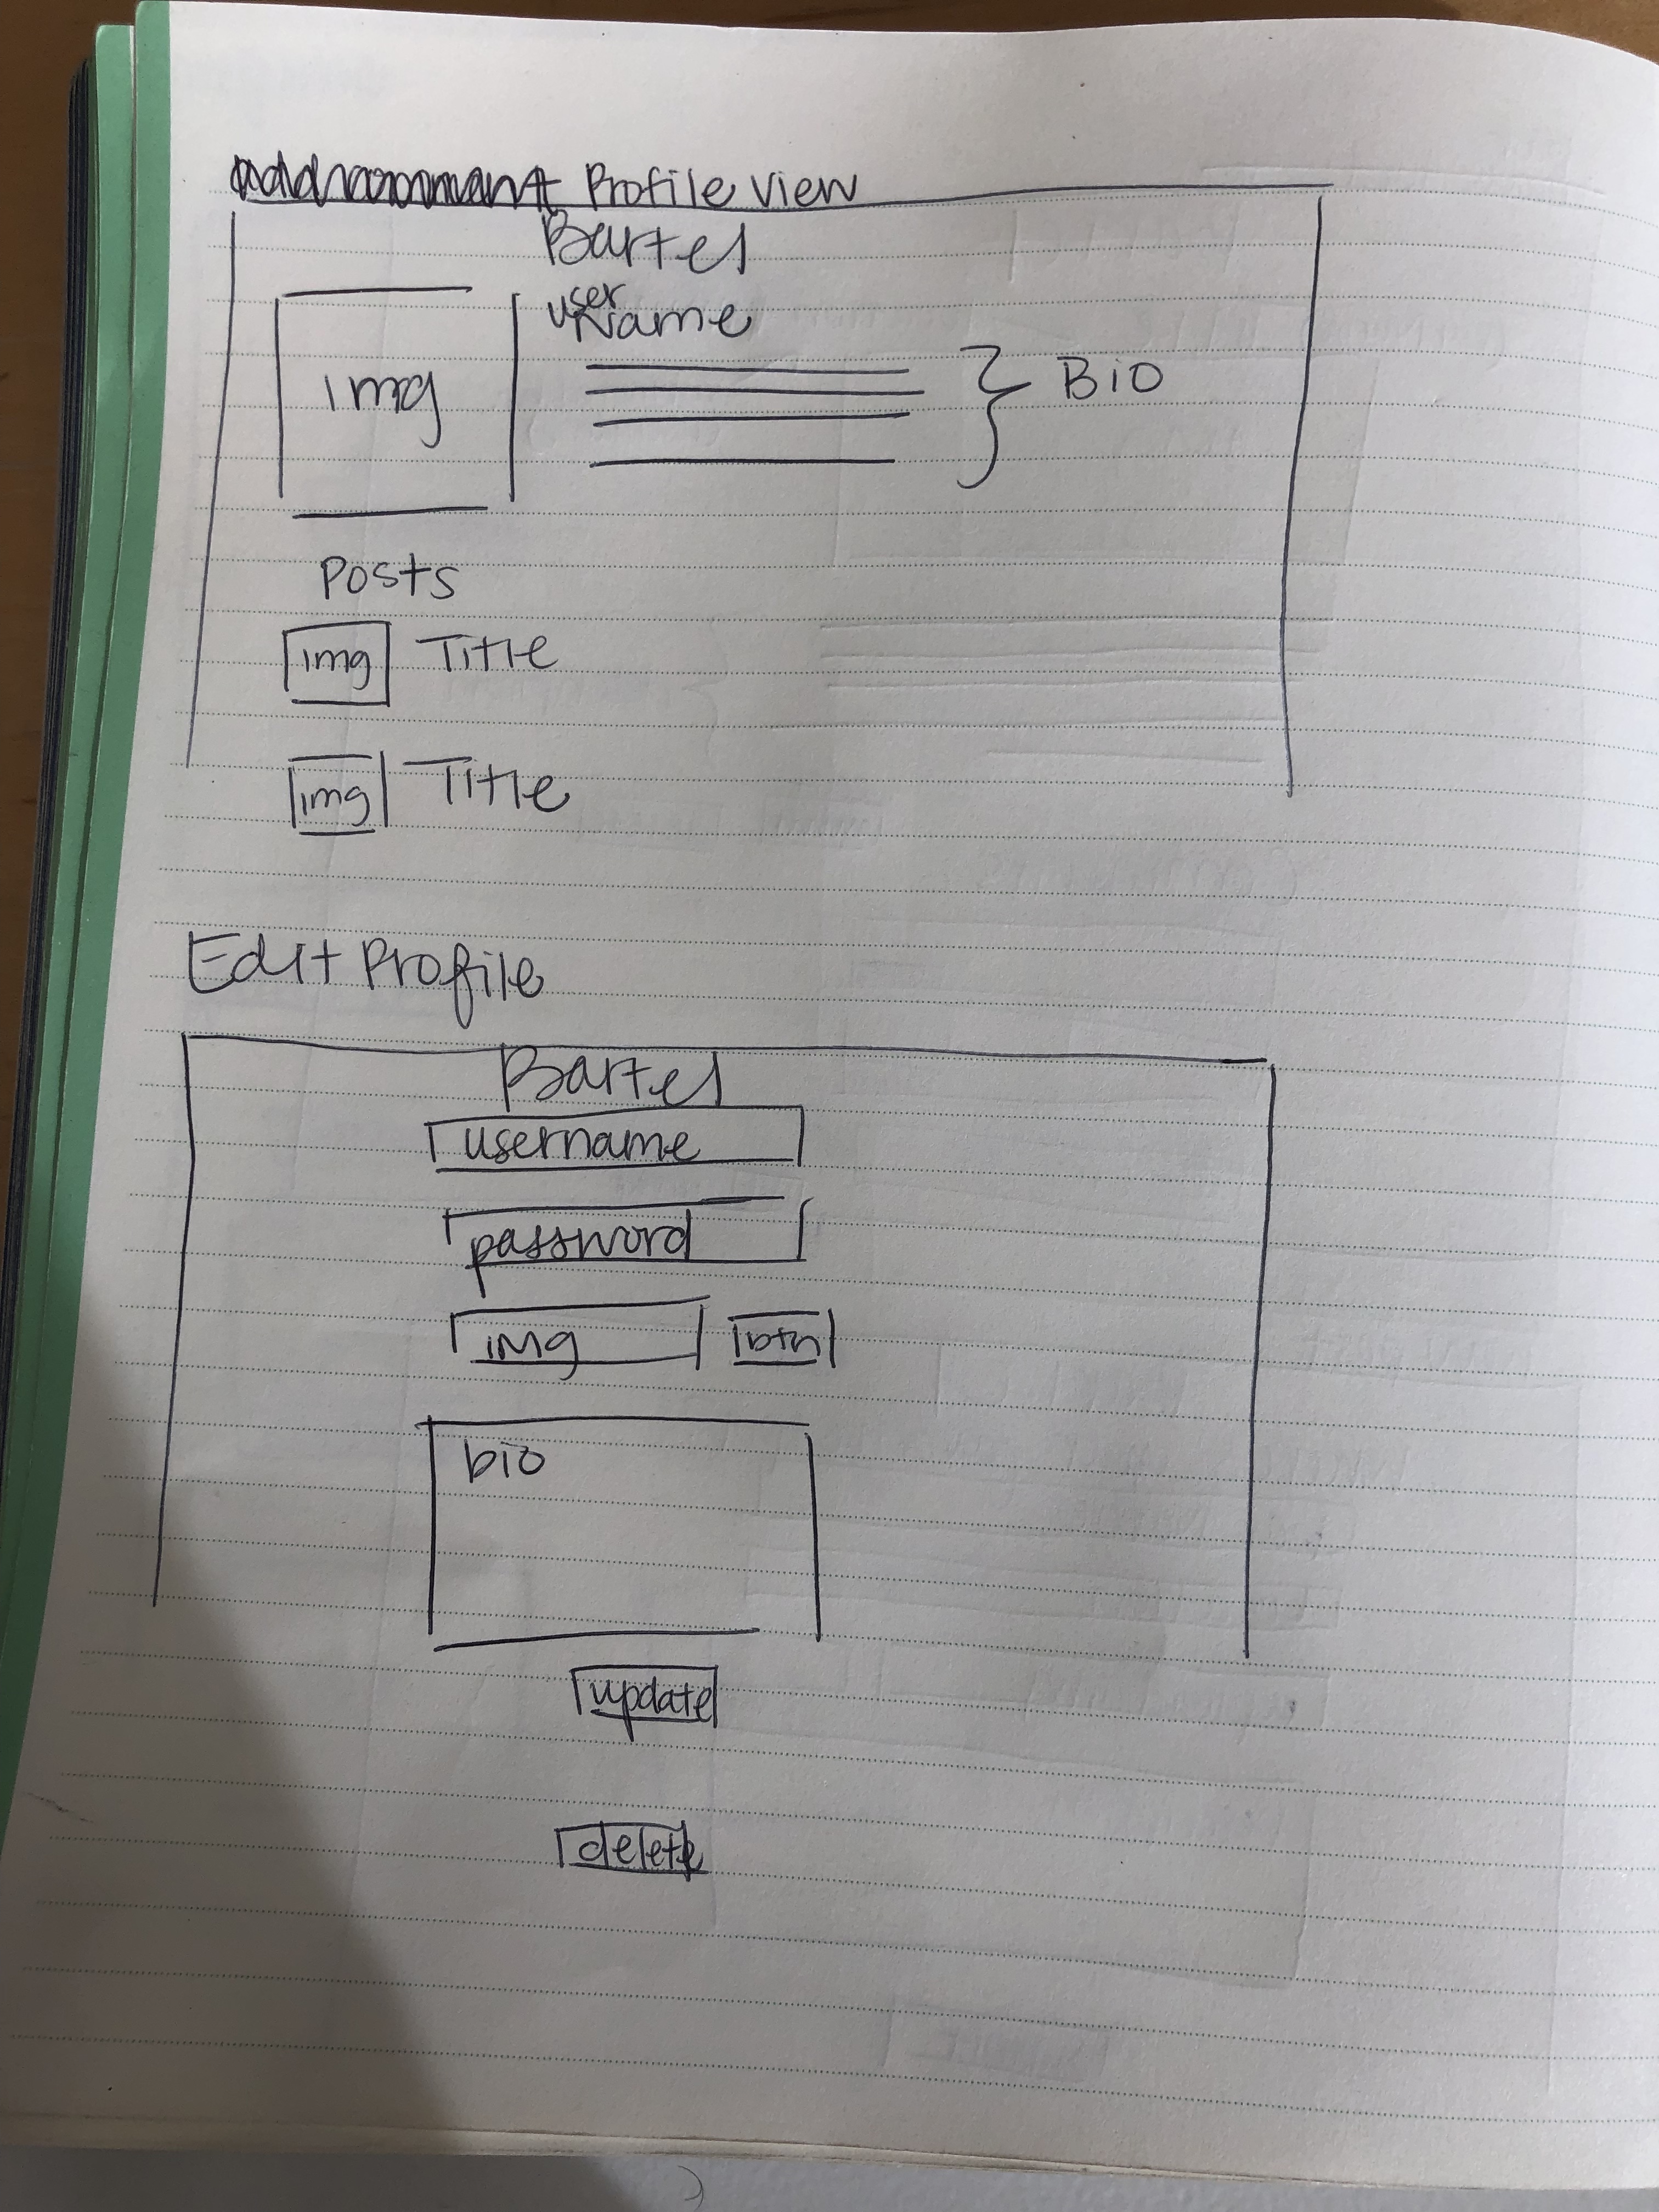 Profile View
Bartel
user
Name
img
Bio
Posts
img Title
img Title
Edit Profile
Bartel
username
password
img btn
bio
update
delete